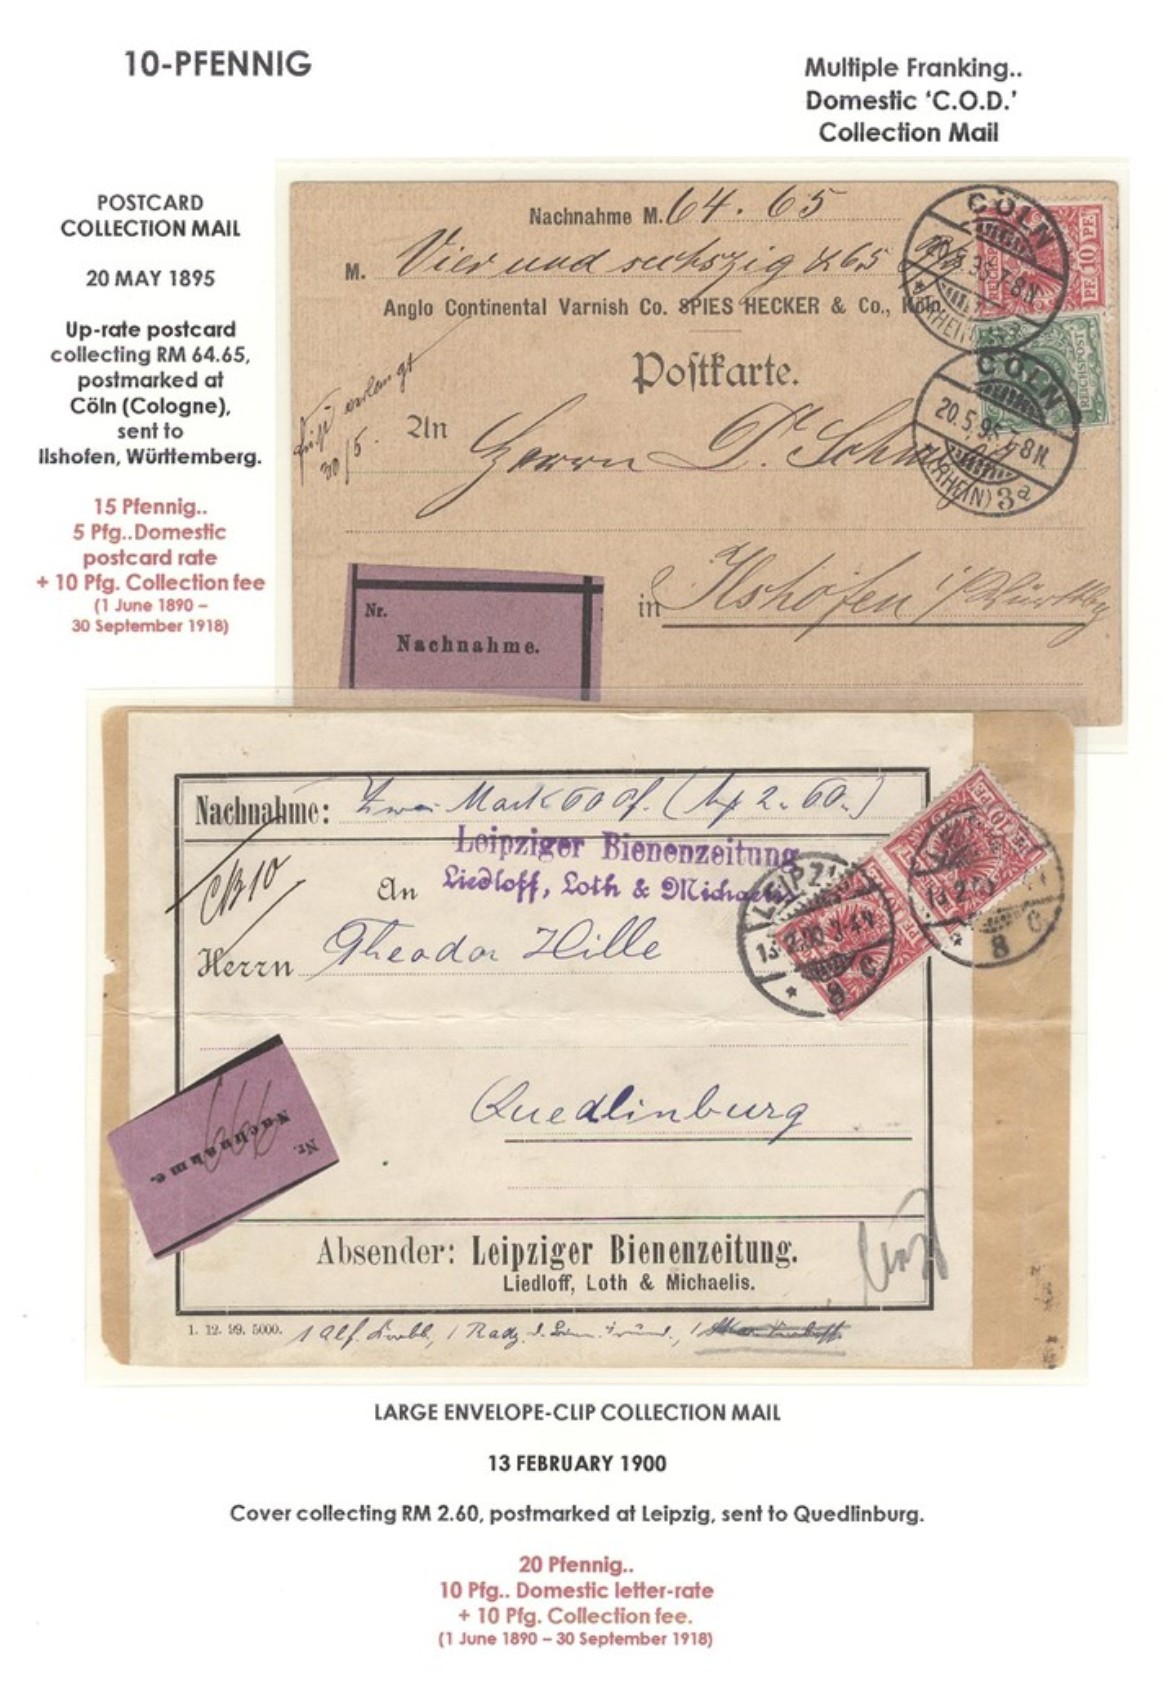 10-PFENNIG
Multiple Franking..
Domestic ‘C.O.D.’
Collection Mail
POSTCARD
COLLECTION MAIL
20 MAY 1895
Up-rate postcard
collecting RM 64.65,
postmarked at
Cöln (Cologne),
sent to
Ilshofen, Württemberg.
15 Pfennig..
5 Pfg..Domestic
postcard rate
+ 10 Pfg. Collection fee
(1 June 1890 –
30 September 1918)
Nachnahme M. 64.65
M. Vier und sechszig & 65
Anglo Continental Varnish Co. SPIES HECKER & Co., Köln.
Postkarte.
An Herrn
in Ilshofen
Nr.
Nachnahme.
CÖLN
(RHEIN)
REICHSPOST
CÖLN
20.5.95
(RHEIN) 3a
Nachnahme: Zwei Mark 60 (2.60.)
Leipziger Bienenzeitung
Liedloff, Loth & Michaelis
An
Herrn Theodor Hille
LEIPZIG
8
8
Quedlinburg
Nr.
Nachnahme.
Absender: Leipziger Bienenzeitung.
Liedloff, Loth & Michaelis.
1. 12. 99. 5000.
LARGE ENVELOPE-CLIP COLLECTION MAIL
13 FEBRUARY 1900
Cover collecting RM 2.60, postmarked at Leipzig, sent to Quedlinburg.
20 Pfennig..
10 Pfg.. Domestic letter-rate
+ 10 Pfg. Collection fee.
(1 June 1890 – 30 September 1918)